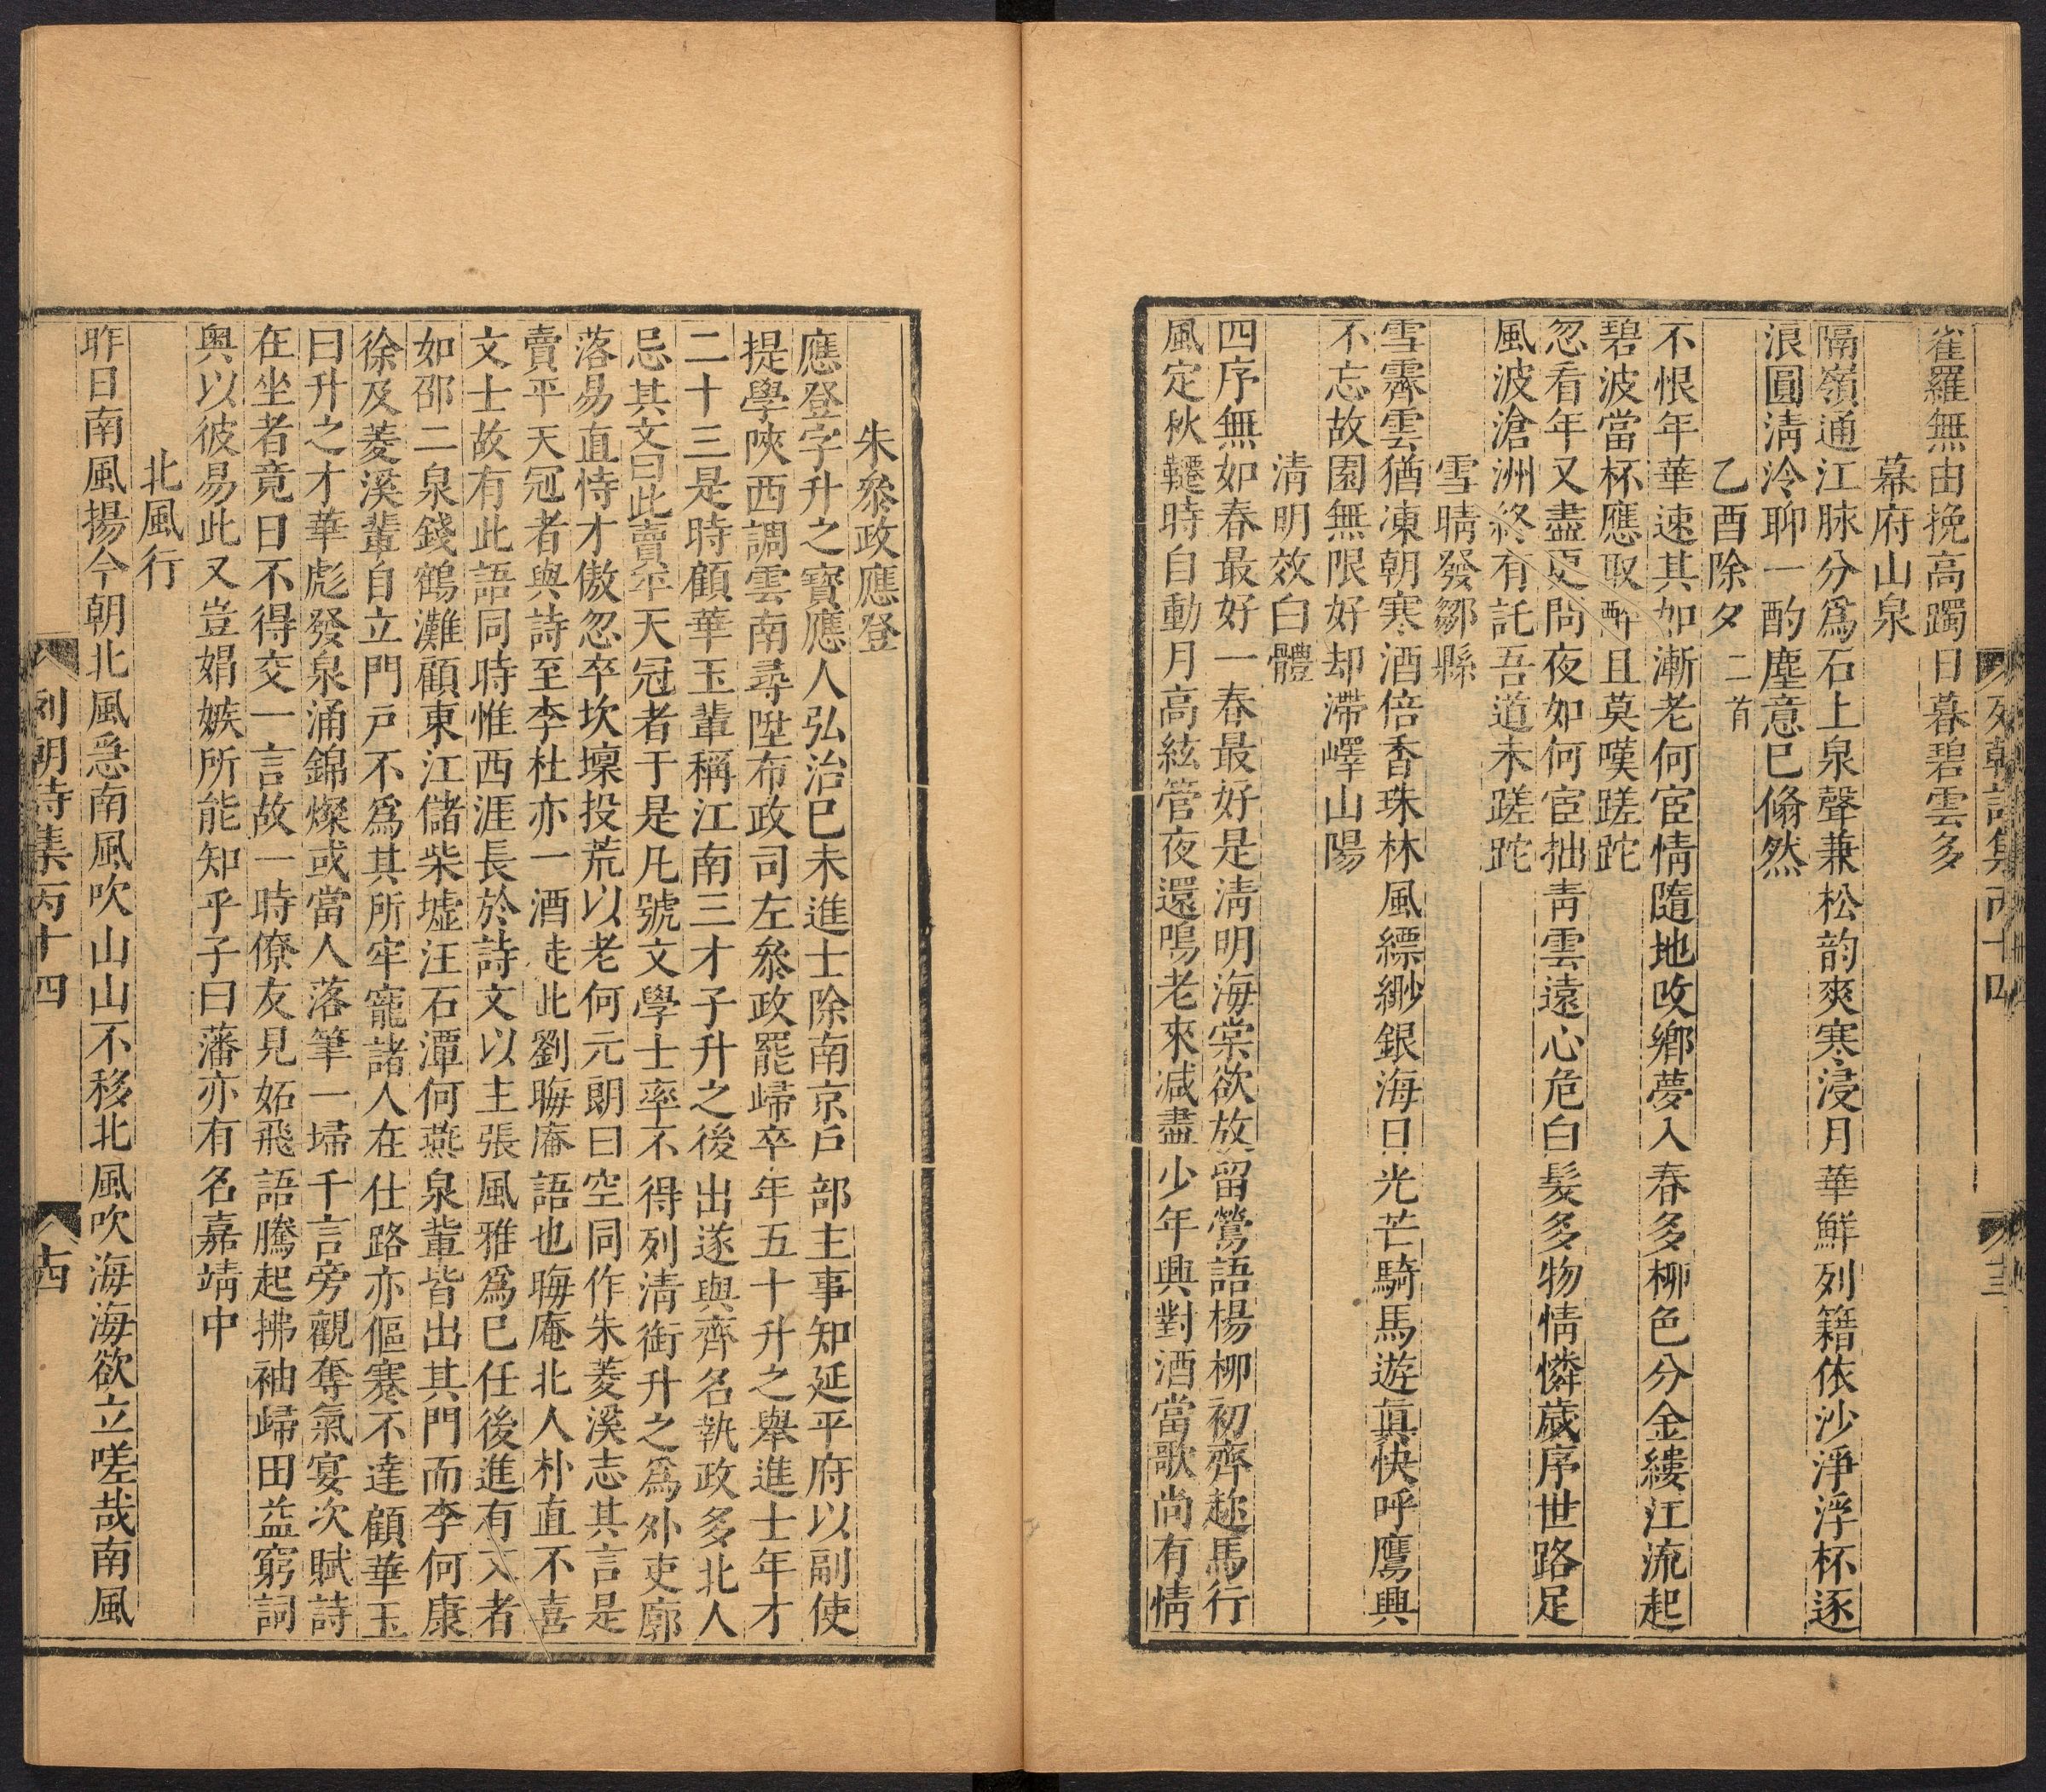 列朝詩集丙十四
十三
雀羅無由挽高躅日暮碧雲多
幕府山泉
隔嶺通江脉分為石上泉聲兼松韵爽寒浸月華鮮列籍依沙淨浮杯逐
浪圓淸泠聊一酌塵意已翛然
乙酉除夕二首
不恨年華速其如漸老何宦情隨地改鄉夢入春多柳色分金縷江流起
碧波當杯應取醉且莫嘆蹉跎
忽看年又盡更問夜如何宦拙靑雲遠心危白髮多物情憐歲序世路足
風波滄洲終有託吾道未蹉跎
雪晴發鄒縣
雪霽雲猶凍朝寒酒倍香珠林風縹緲銀海日光芒騎馬遊眞快呼鷹興
不忘故園無限好却滯嶧山陽
淸明效白體
四序無如春最好一春最好是淸明海棠欲放留鶯語楊柳初齊趂馬行
風定秋韆時自動月高絃管夜還鳴老來减盡少年興對酒當歌尚有情
朱叅政應登
應登字升之寳應人弘治巳未進士除南京戶部主事知延平府以副使
提學陜西調雲南尋陞布政司左叅政罷歸卒年五十升之舉進士年才
二十三是時顧華玉輩稱江南三才子升之後出遂與齊名執政多北人
忌其文曰此賣平天冠者于是凡號文學士率不得列淸銜升之爲外吏廓
落易直恃才傲忽卒坎壈投荒以老何元朗曰空同作朱菱溪志其言是
賣平天冠者與詩至李杜亦一酒徒此劉晦庵語也晦庵北人朴直不喜
文士故有此語同時惟西涯長於詩文以主張風雅爲已任後進有文者
如邵二泉錢鶴灘顧東江儲柴墟汪石潭何燕泉輩皆出其門而李何康
徐及菱溪輩自立門戸不爲其所牢寵諸人在仕路亦傴蹇不達顧華玉
曰升之才華彪發泉涌錦燦或當人落筆一埽千言旁觀奪氣宴次賦詩
在坐者竟日不得交一言故一時僚友見妬飛語騰起拂袖歸田益窮詞
奥以彼易此又豈娼嫉所能知乎子曰藩亦有名嘉靖中
北風行
昨日南風揚今朝北風急南風吹山山不移北風吹海海欲立嗟哉南風
列朝詩集丙十四
十四